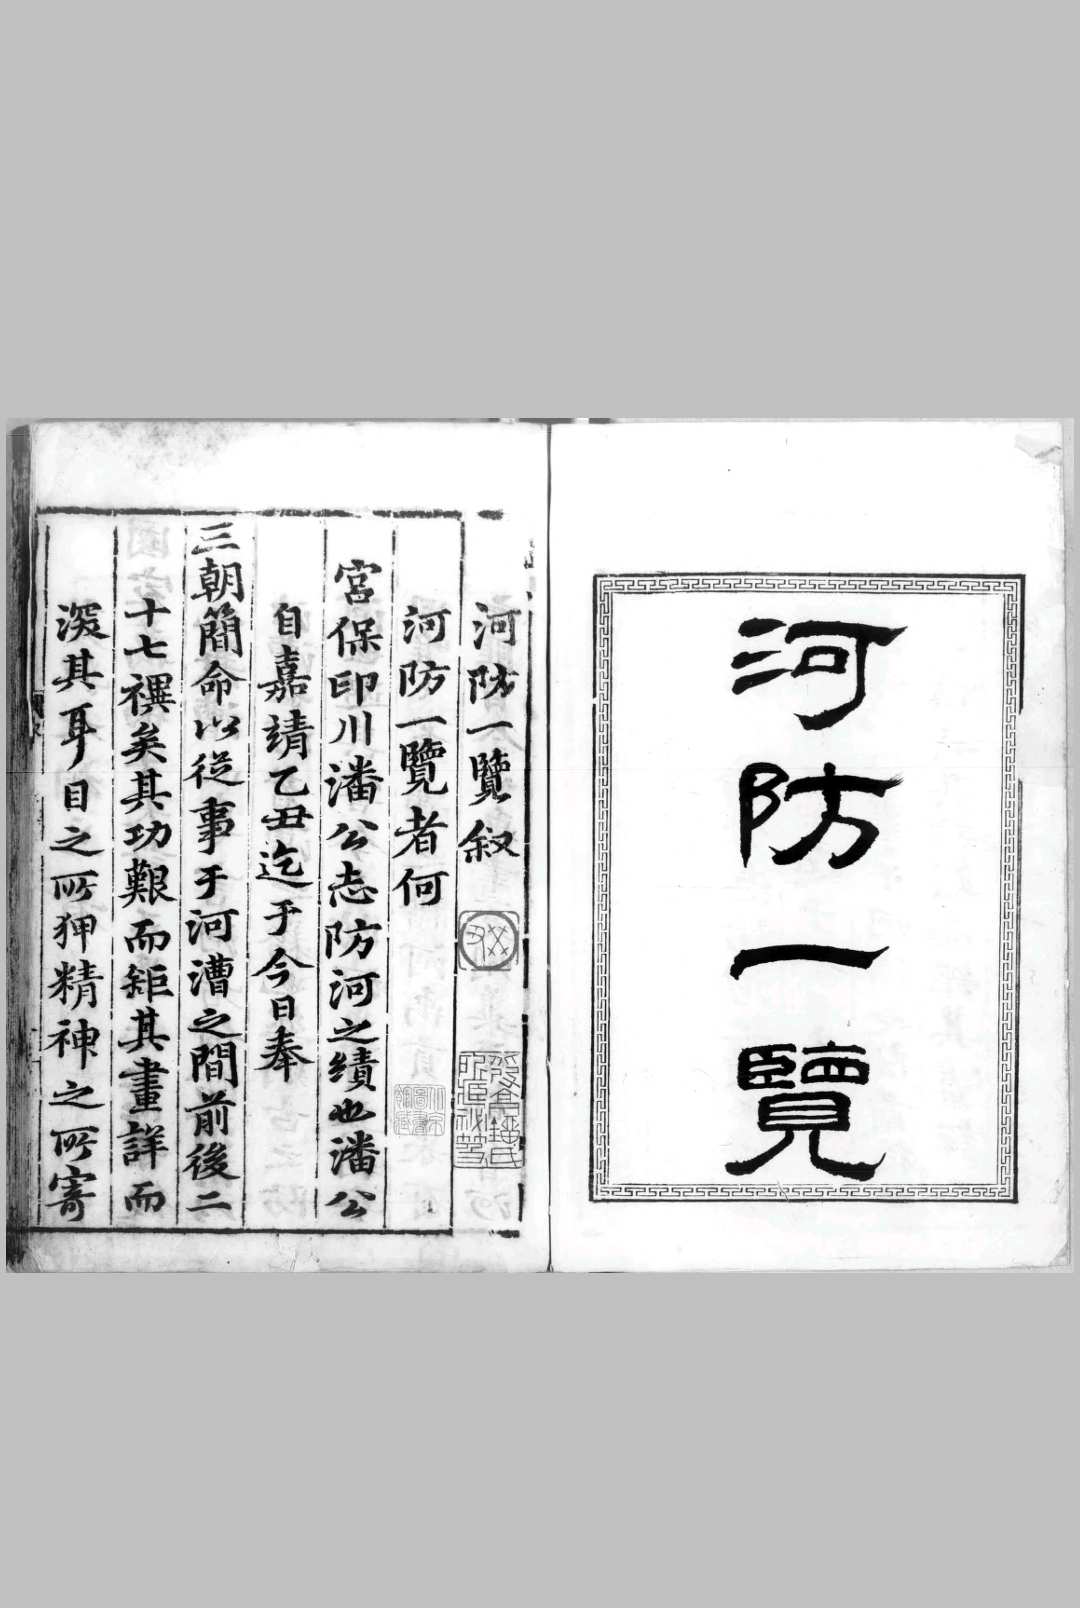 河防一覽
河防一覽叙
河防一覽者何
宮保印川潘公志防河之績也潘公
自嘉靖乙丑迄于今日奉
三朝簡命以從事于河漕之間前後二
十七禩矣其功艱而鉅其畫詳而
深其耳目之所狎精神之所寄